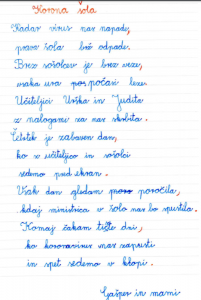 Korona šola
Kadar virus nas napade,
prava šola brž odpade.
Brez sošolcev je brez veze,
vsaka ura por počasi leze.
Učiteljici Urška in Judita
z nalogami za nas skrbita.
Četrtek je zabaven dan,
ko z učiteljico in sošolci
sedemo pred ekran.
Vsak dan gledam poročila,
kdaj ministrica v šolo nas bo spustila.
Komaj čakam tiste dni,
ko koronavirus nas zapusti
in spet sedemo v klopi.
Gašper in mami